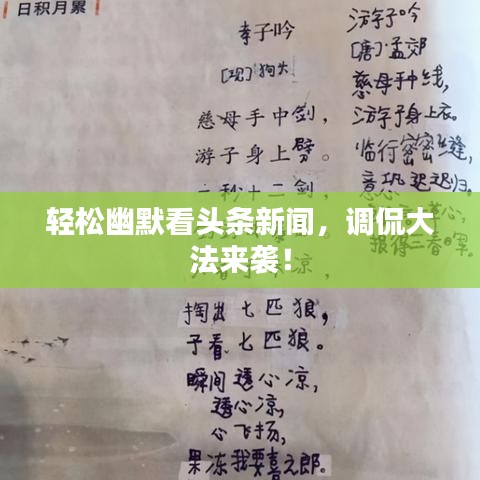 日积月累
李子吟
[现]狗大
慈母手中剑,
游子身上劈。
一秒十二剑,
轻松幽默看头条新闻，调侃大
法来袭！
掏出七匹狼,
子看七匹狼。
瞬间透心凉,
透心凉,
心飞扬,
果冻我要喜之郎。
游子吟
[唐]孟郊
慈母手中线,
游子身上衣。
临行密密缝,
意恐迟迟归。
报得三春晖